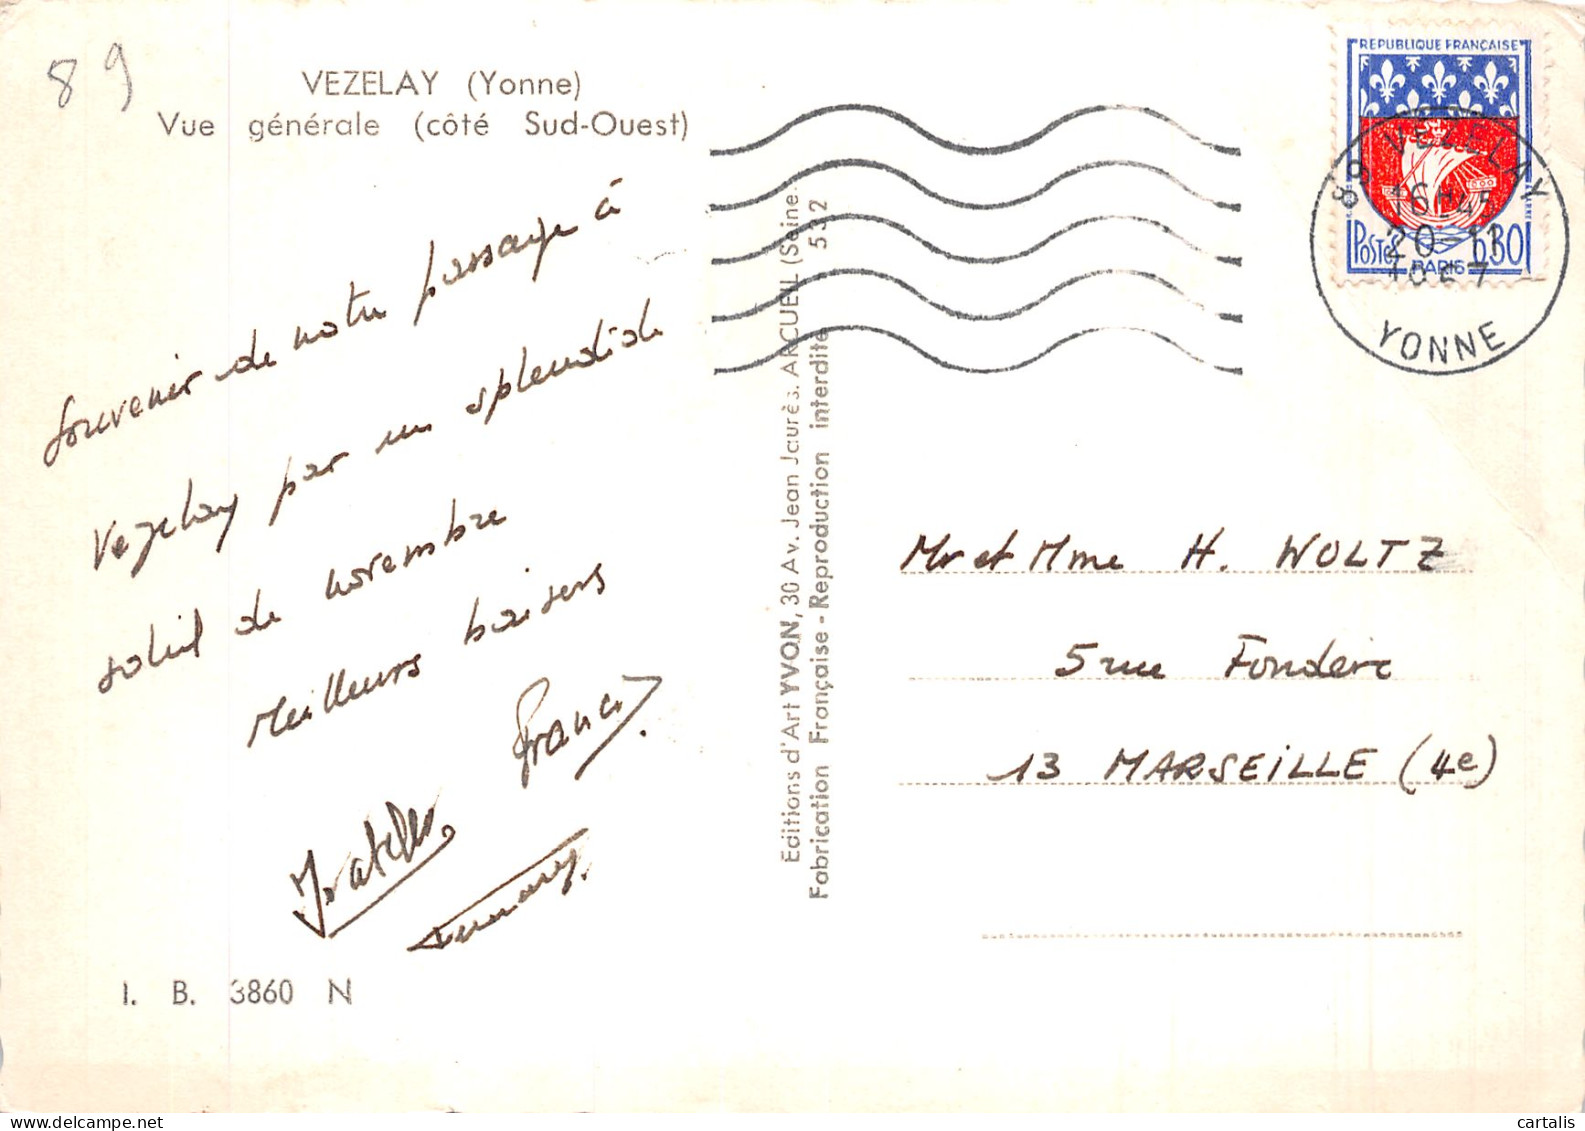 89
VEZELAY (Yonne)
Vue générale (côté Sud-Ouest)
Souvenir de notre passage à
Vezelay par un splendide
soleil de novembre
Meilleurs baisers
Francis
I. B. 3860 N
Editions d'Art YVON, 30 Av. Jean Jaurès. ARCUEIL (Seine)
Fabrication Française - Reproduction interdite 532
REPUBLIQUE FRANÇAISE
POSTES 0,30
PARIS
89 VEZELAY
16H45
20-11
YONNE
Mr et Mme H. WOLTZ
5 rue Fondère
13 MARSEILLE (4e)
cartalis
www.delcampe.net